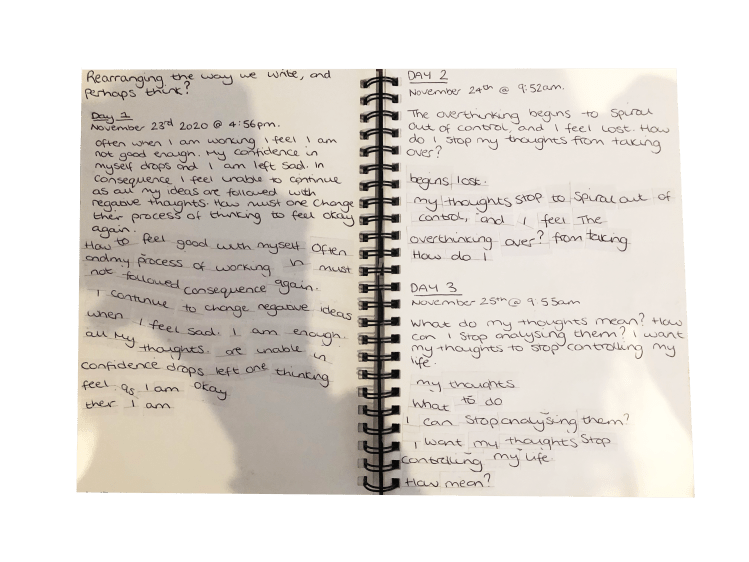 Rearranging the way we write, and
perhaps think?
Day 1
November 23rd 2020 @ 4:56pm.
Often when I am working I feel I am
not good enough. My confidence in
myself drops and I am left sad. In
consequence I feel unable to continue
as all my ideas are followed with
negative thoughts. How must one change
their process of thinking to feel okay
again.
How to feel good with myself Often
and my process of working in must
not followed consequence again.
I continue to change negative ideas
when I feel sad. I am enough.
all My thoughts are unable in
confidence drops left one thinking
feel as I am Okay
their I am
DAY 2
November 24th @ 9:52am.
The overthinking begins to spiral
out of control, and I feel lost. How
do I stop my thoughts from taking
over?
begins lost.
my thoughts stop to spiral out of
control, and I feel The
overthinking over? from taking
How do I
DAY 3
November 25th @ 9:55am
What do my thoughts mean? How
can I stop analysing them? I want
my thoughts to stop controlling my
life.
my thoughts
What to do
I can stop analysing them?
I want my thoughts stop
controlling my life
How mean?